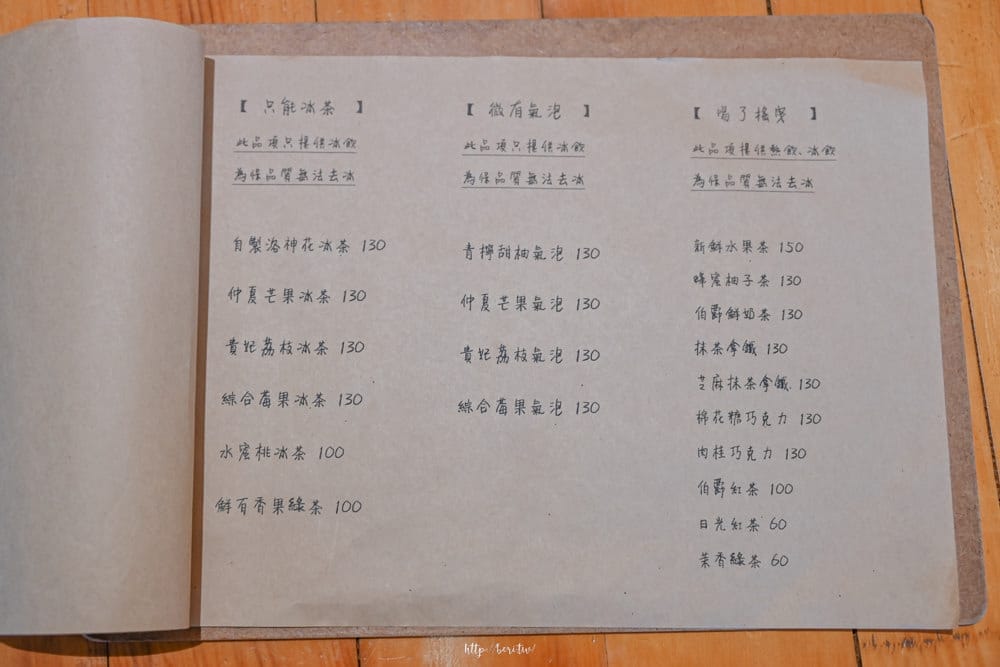 【 只能冰茶 】
此品項只提供冰飲
為保品質無法去冰
自製洛神花冰茶 130
仲夏芒果冰茶 130
貴妃荔枝冰茶 130
綜合莓果冰茶 130
水蜜桃冰茶 100
鮮百香果綠茶 100
【 微有氣泡 】
此品項只提供冰飲
為保品質無法去冰
青檸甜柚氣泡 130
仲夏芒果氣泡 130
貴妃荔枝氣泡 130
綜合莓果氣泡 130
【 喝了搖曳 】
此品項提供熱飲、冰飲
為保品質無法去冰
新鮮水果茶 150
蜂蜜柚子茶 130
伯爵鮮奶茶 130
抹茶拿鐵 130
芝麻抹茶拿鐵 130
棉花糖巧克力 130
肉桂巧克力 130
伯爵紅茶 100
日光紅茶 60
茉香綠茶 60